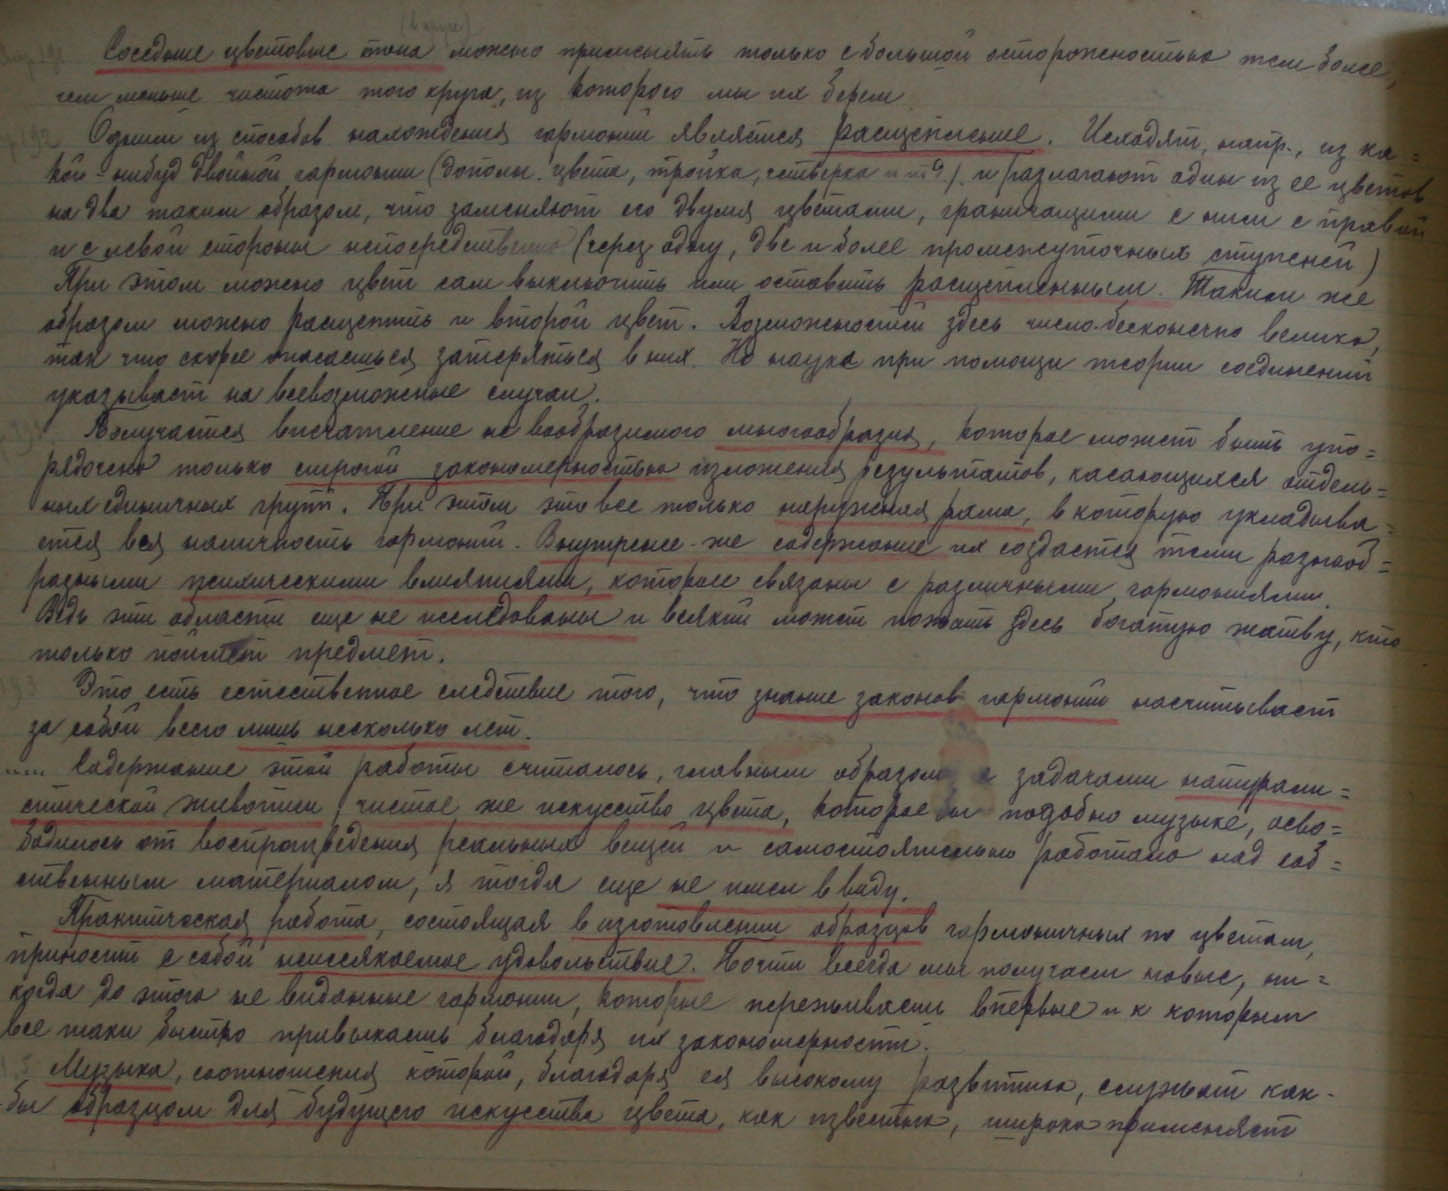 (в круге)
Соседние цветовые тона можно применять только с большой осторожностью тем более,
чем меньше чистота того круга, из которого мы их берем
Одним из способов нахождения гармоний является расщепление. Исходят, напр., из ка=
кой-нибуд двойной гармонии (дополн. цвета, тройка, четверка и т.д.) и разлагают один из ее цветов
на два таким образом, что заменяют его двумя цветами, граничащими с ним с правой
и с левой стороны непосредственно (через одну, две и более промежуточных ступеней)
При этом можно цвет сам выключить или оставить расщепленным. Таким же
образом можно расщепить и второй цвет. Возможностей здесь число бесконечно велико,
так что скорее опасаешься затеряться в них. Но наука при помощи теории соединений
указывает на всевозможные случаи.
Получается впечатление не вообразимого многообразия, которое может быть упо=
рядочено только строгой закономерностью изложения результатов, касающихся отдель=
ных единичных групп. При этом это все только наружная рама, в которую укладыва=
ется вся наличность гармоний. Внутренее же содержание их создается теми разнооб=
разными психическими влияниями, которые связаны с различными гармониями.
Ведь эти области еще не исследованы и всякий может пожать здесь богатую жатву, кто
только поймет предмет.
193 Это есть естественное следствие того, что знание законов гармонии насчитывает
за собой всего лишь несколько лет.
..... Содержание этой работы считалось, главным образом с задачами натурали=
стической живописи, чистое же искусство цвета, которое бы подобно музыке, осво=
бодилось от воспроизведения реальных вещей и самостоятельно работало над соб=
ственным материалом, я тогда еще не имел в виду.
Практическая работа, состоящая в изготовлении образцов гармоничных по цветам,
приносит с собой неиссякаемое удовольствие. Почти всегда мы получаем новые, ни=
когда до этого не виданные гармонии, которые переживаешь впервые и к которым
все таки быстро привыкаешь благодаря их закономерности.
Музыка, соотношения которой, благодаря ея высокому развитию, служат как-
бы образцом для будущего искусства цвета, как известно, широко применяет